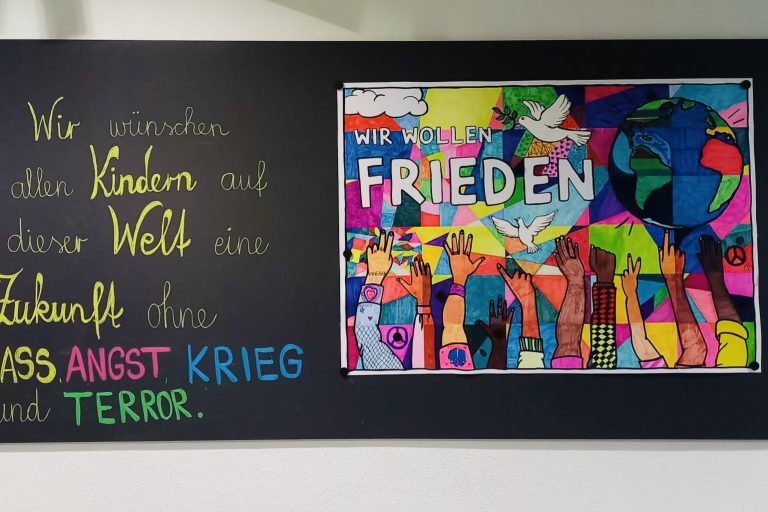 Wir wünschen
allen Kindern auf
dieser Welt eine
Zukunft ohne
ASS, ANGST, KRIEG
und TERROR.
WIR WOLLEN
FRIEDEN